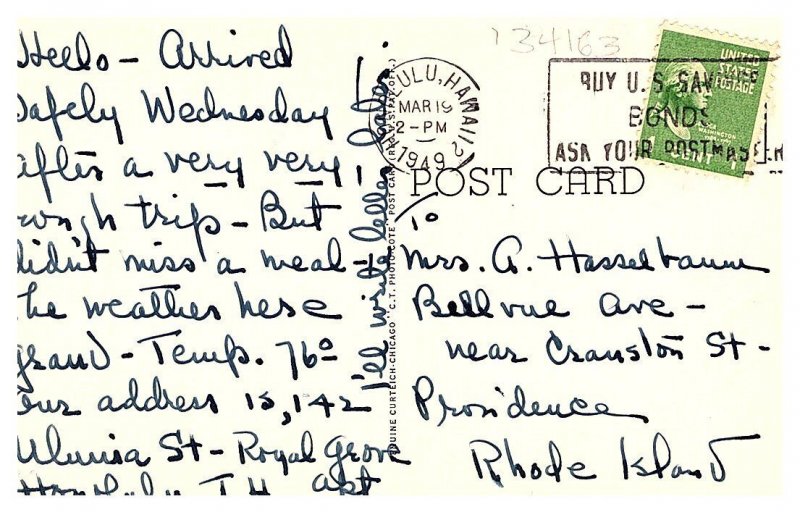 Hello - Arrived
Safely Wednesday
after a very very,
rough trip - But
didn't miss a meal -
the weather here
grand - Temp. 76°
Our address is, 142
St - Royal Grove
Honolulu T.H. apt
I'll write letter later.
GENUINE CURTEICH-CHICAGO "C.T. PHOTO-COTE" POST CARD (REG. U.S. PAT. OFF.)
134163
ULU, HAWAII
MAR 19
2-PM
1949
BUY U.S. SAV
BONDS
ASK YOUR POSTMASTER
UNITED
STATES
POSTAGE
WASHINGTON
CENT 1
POST CARD
To
Mrs. A. Hasselbaum
Bellvue Ave -
near Cranston St -
Providence
Rhode Island